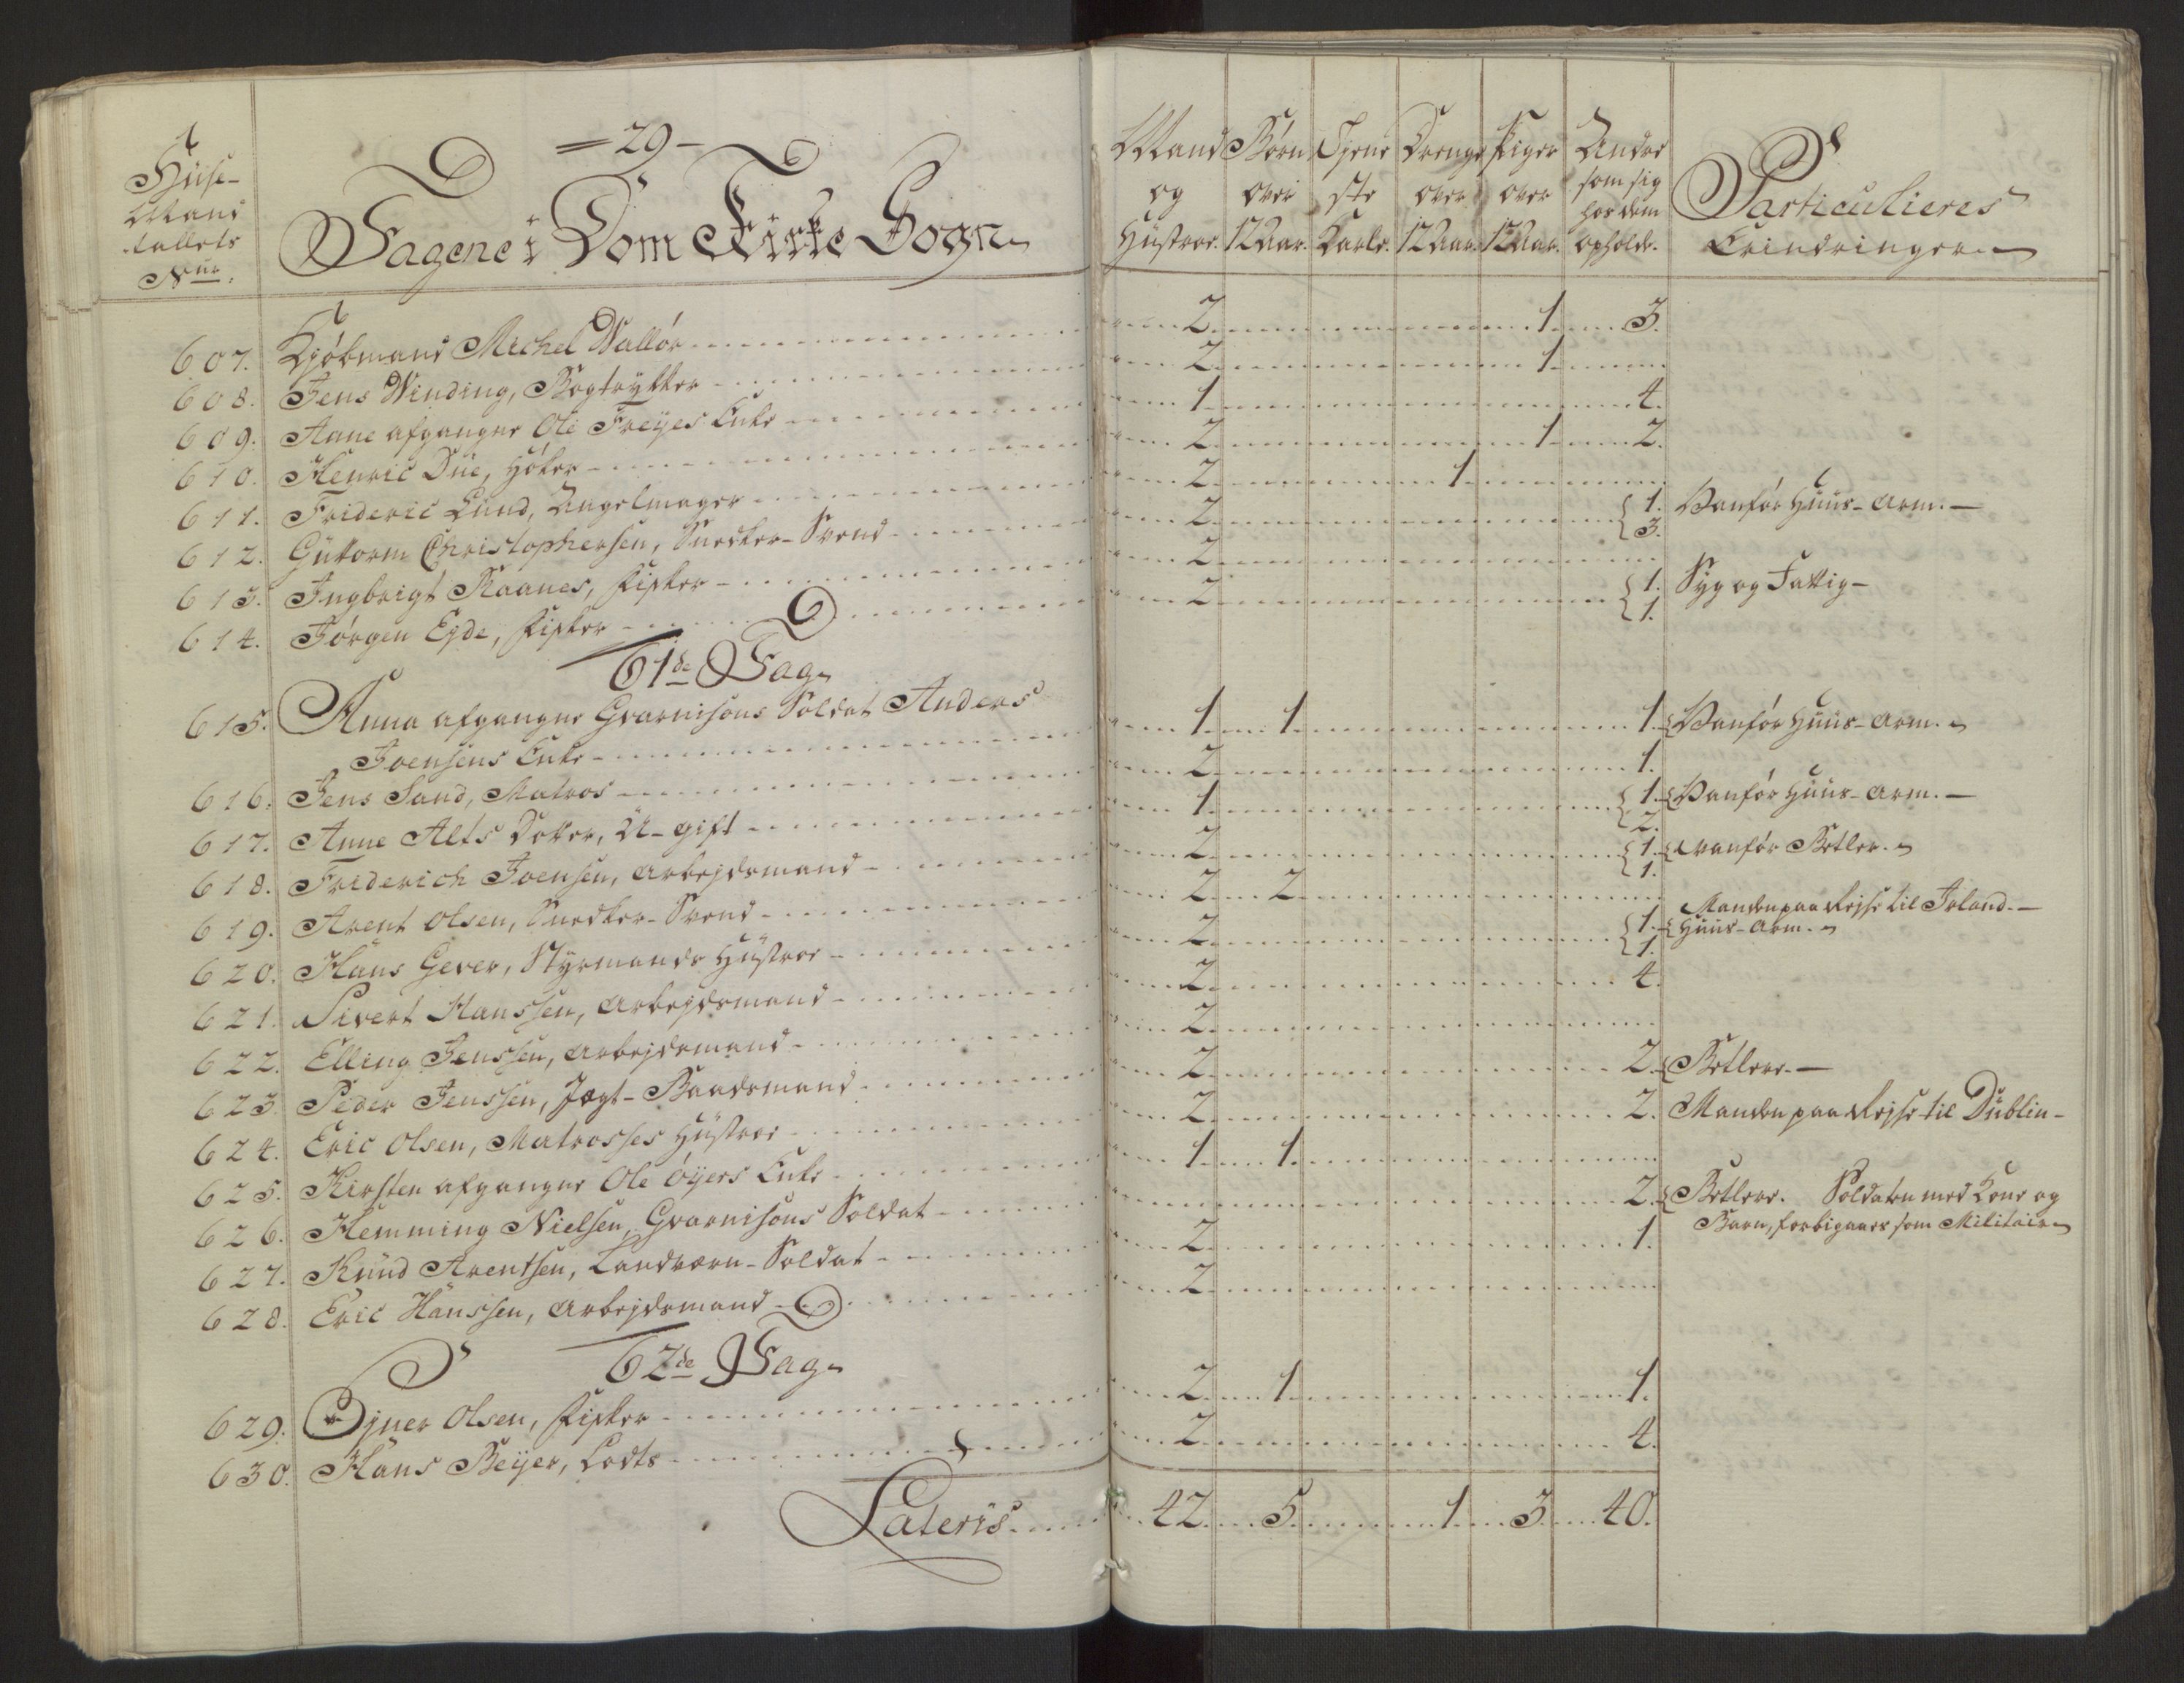 =29-
Huus-
Mand
tallets
Nur.
Tagene i Dom Kirke Sogn
Mand og Hustroe.
Børn over 12 Aar.
Tjene ste Karle.
Drenge over 12 Aar.
Piger over 12 Aar.
Andre som sig hos dem opholde.
Particulieres Erindringer
607. Kjøbmand Michel Walløe 2 1 3.
608. Jens Winding, Bogtrykker 2 1
609. Aane afgangne Ole Freÿes Enke 1 4.
610. Henric Due, Høker 2 1 2.
611. Frideric Lund, Angelmager 2 1
612. Guttorm Christophersen, Snedker-Svend 2 { 1. Vanfør Huus-arm.
3.
613. Ingbrigt Raanes, Fisker 2
614. Jørgen Eyde, Fisker 2 { 1. Syg og Fattig-
1.
61de Tag
615. Anna afgangne Gvarnisons Soldat Anders
Joensens Enke 1 1 1. Vanfør Huus-arm.
616. Jens Sand, Matros 2 1.
617. Anne Alts Dotter, U-gift 1 { 1. Vanfør Huus-arm.
2.
618. Friderich Joensen, Arbejdsmand 2 { 1. vanfør Betler.
1.
619. Arent Olsen, Snedker-Svend 2 2
620. Hans Gever, Styrmands Hustroe 2 { 1. Manden paa Rejse til Irland.
1. Huus-Arm.
621. Sivert Hanssen, Arbejdsmand 2 4.
622. Elling Jenssen, Arbejdsmand 2
623. Peder Jenssen, Jægt-Baadsmand 2 2. Betlere.
624. Eric Olsen, Matrosses Hustroe 2 2. Manden paa Rejse til Dublin-
625. Kirsten afgangne Ole Øÿers Enke 1 1
626. Hemming Nielsen, Gvarnisons Soldat 2. Betlere. Soldaten med Kone og
Barn, forbigaaer som Militair
627. Knud Arentsen, Landværn-Soldat 2 1.
628. Eric Hanssen, Arbejdsmand 2
62de Tag
629. Ejner Olsen, Fisker 2 1 1.
630. Hans Beÿer, Lodts 2 4.
Lateris 42 5 1 3 40.